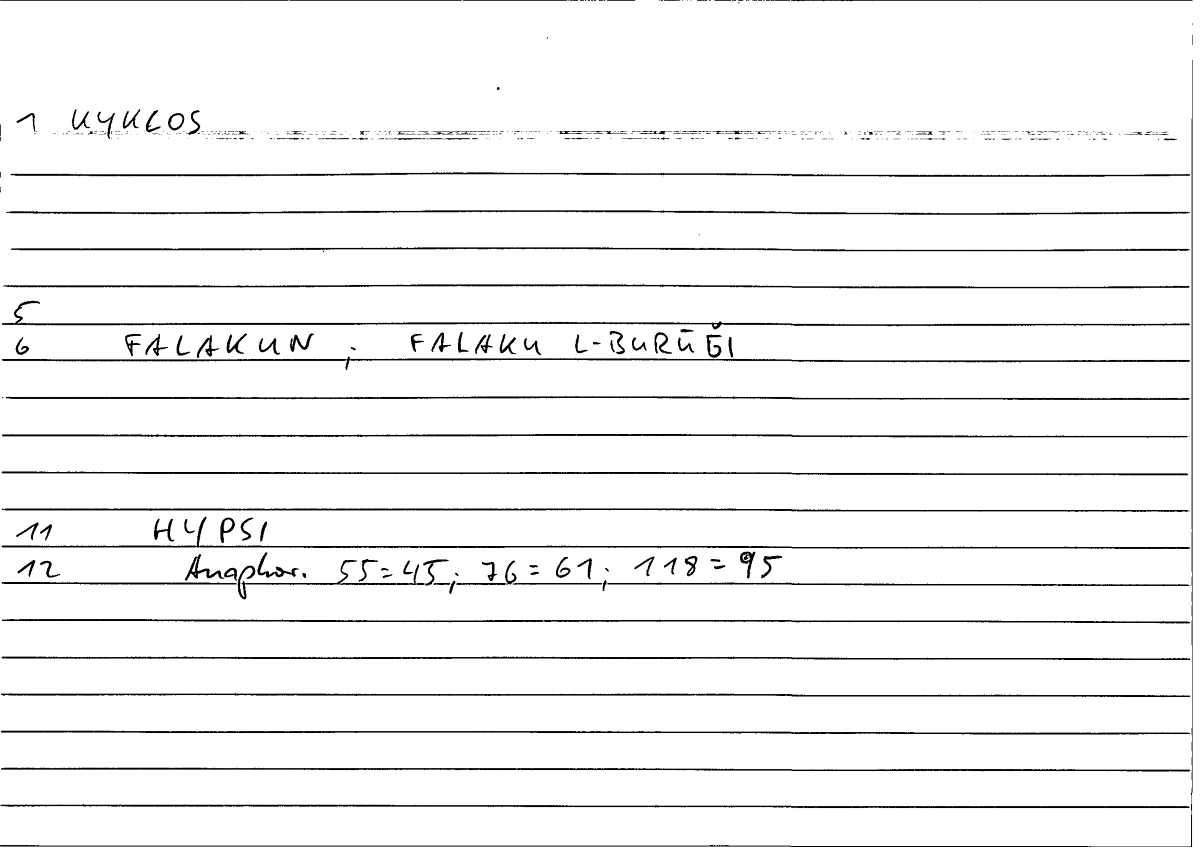 1 KYKLOS
5
6 FALAKUN ; FALAKU L-BURŪǦI
11 HYPSI
12 Anaphor. 55=45; 76=61; 118=95